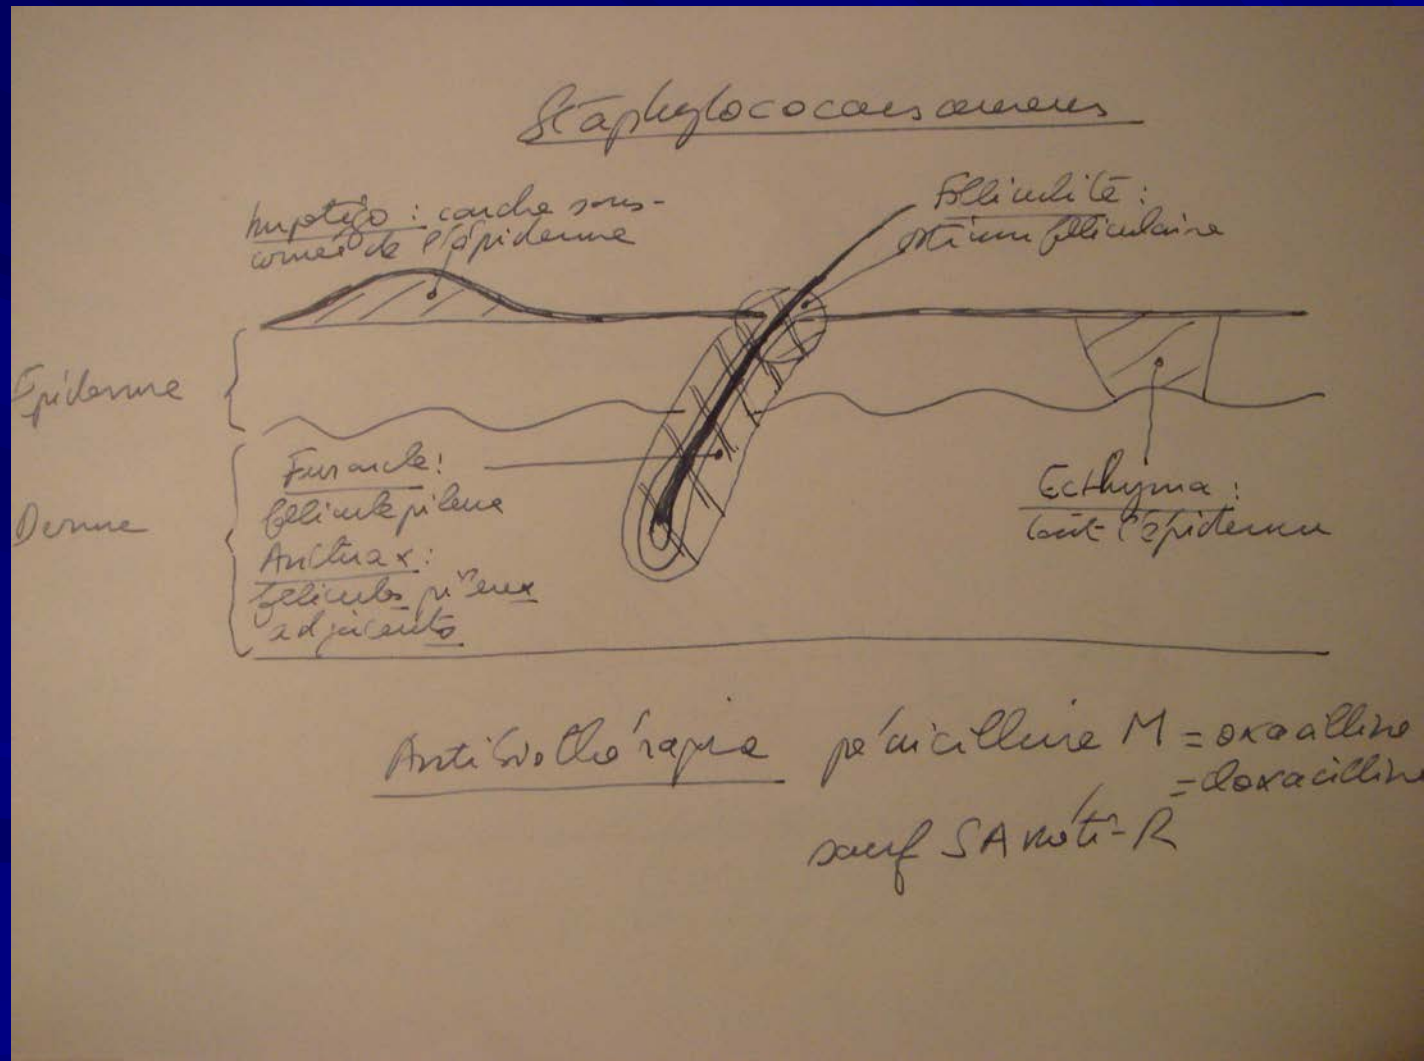 Staphylococcus aureus
Impétigo : couche sous-
cornée de l'épiderme
Folliculite :
ostium folliculaire
Epiderme
Derme
Furoncle :
follicule pileux
Anthrax :
follicules pileux
adjacents
Ecthyma :
tout l'épiderme
Antibiothérapie pénicilline M = oxacilline
= cloxacilline
sauf SA méti-R